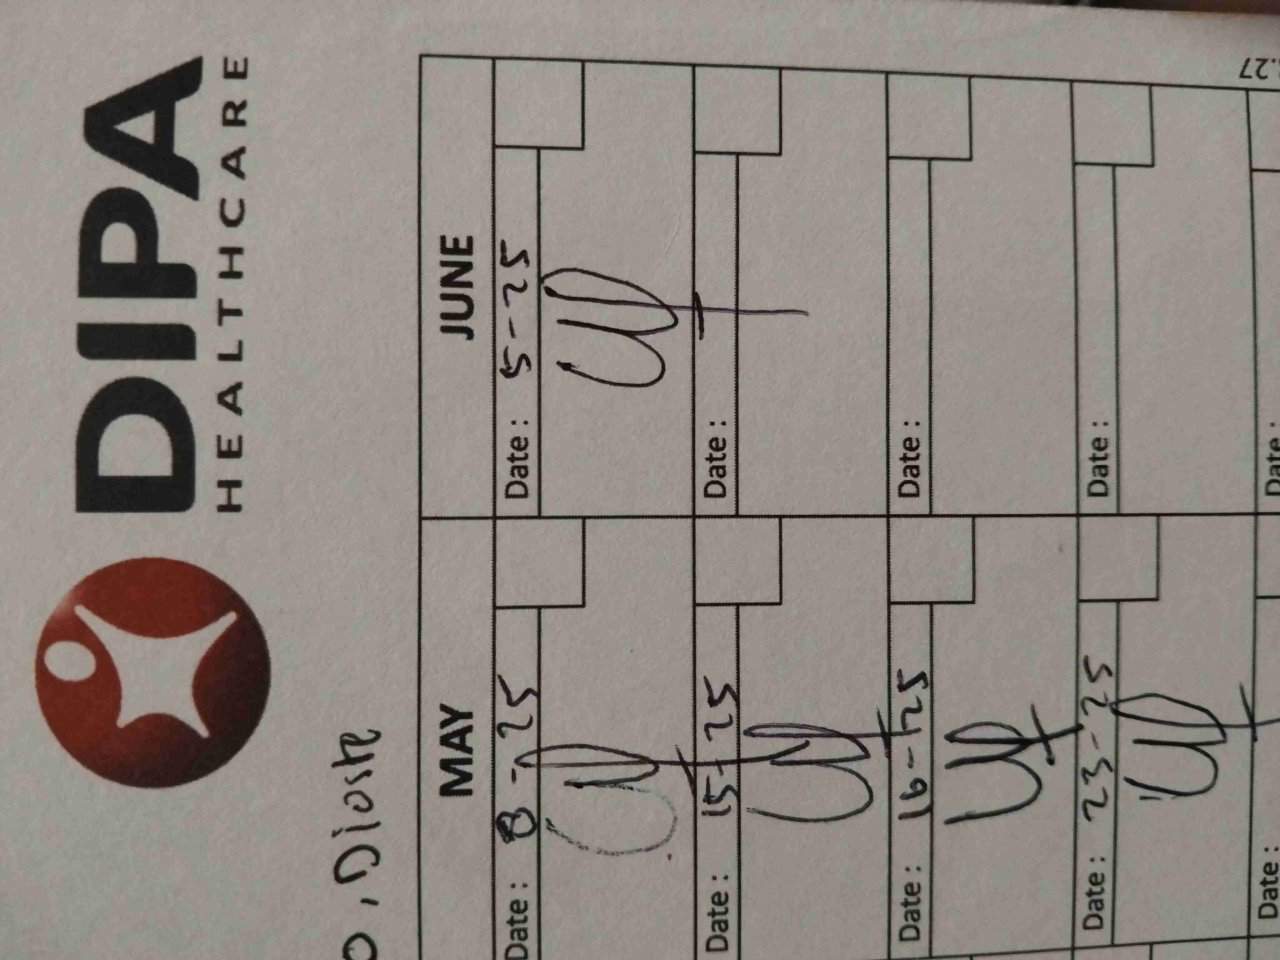 DIPA
HEALTHCARE
MAY JUNE
Date : 8 - 25
Date : 5 - 25
Date : 15 - 25
Date :
Date : 16 - 25
Date :
Date : 23 - 25
Date :
Date :
Date :
.27